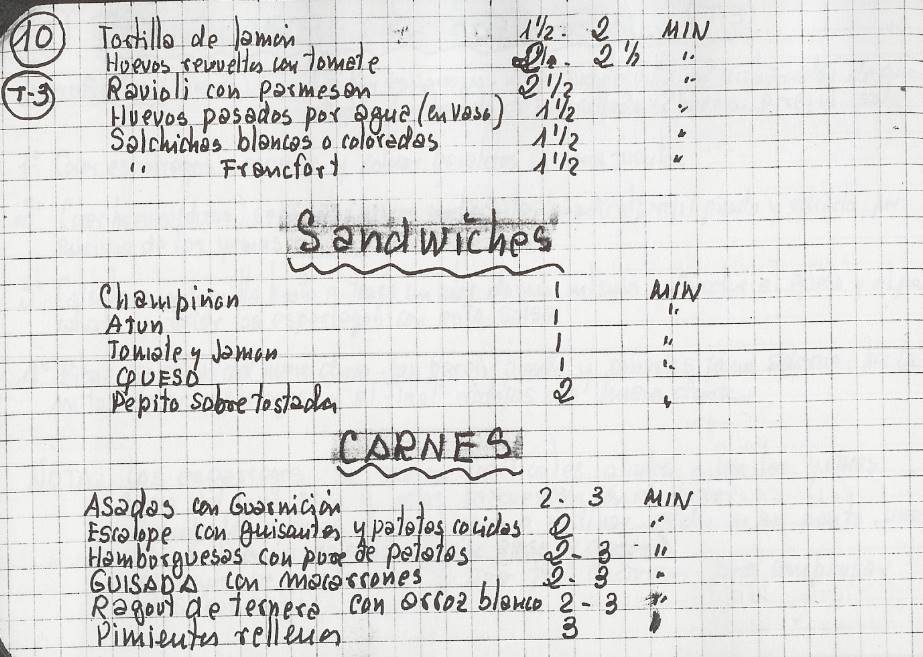 10 Tostilla de Jamón 1½ - 2 MIN
Huevos revueltos con Tomate 2 - 2½ "
T-3 Ravioli con Parmesan 2½ "
Huevos pasados por agua (en Vaso) 1½ "
Salchichas blancas o coloradas 1½ "
" Francfort 1½ "
Sandwiches
Champiñon 1 MIN
Atun 1 "
Tomate y Jamon 1 "
QUESO 1 "
Pepito sobre tostada 2 "
CARNES
Asadas con Guarnición 2 - 3 MIN
Escalope con guisantes y patatas cocidas 2 "
Hamborguesas con pure de patatas 2 - 3 "
GUISADA con macarrones 2 - 3 "
Ragout de ternera con arroz blanco 2 - 3 "
Pimientos rellenos 3 "